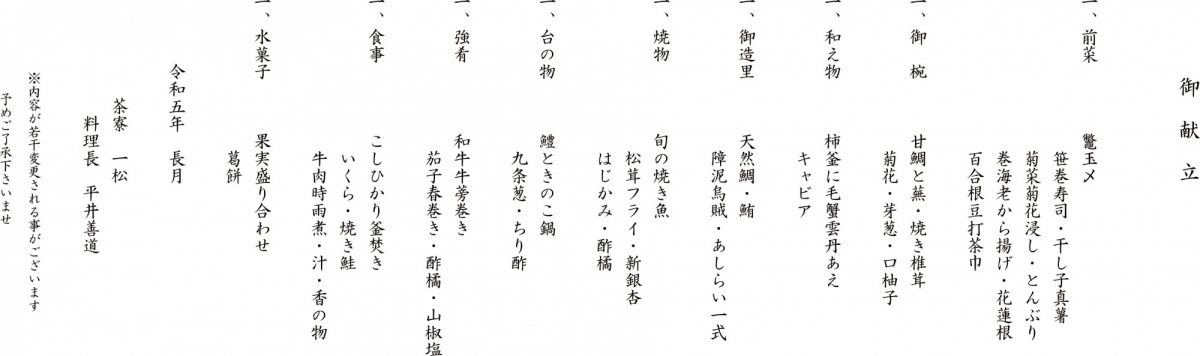 御献立
一、前菜 鼈玉〆
笹巻寿司・干し子真薯
菊菜菊花浸し・とんぶり
巻海老から揚げ・花蓮根
百合根豆打茶巾
一、御椀 甘鯛と蕪・焼き椎茸
菊花・芽葱・口柚子
一、和え物 柿釜に毛蟹雲丹あえ
キャビア
一、御造里 天然鯛・鮪
障泥烏賊・あしらい一式
一、焼物 旬の焼き魚
松茸フライ・新銀杏
はじかみ・酢橘
一、台の物 鱧ときのこ鍋
九条葱・ちり酢
一、強肴 和牛牛蒡巻き
茄子春巻き・酢橘・山椒塩
一、食事 こしひかり釜焚き
いくら・焼き鮭
牛肉時雨煮・汁・香の物
一、水菓子 果実盛り合わせ
葛餅
令和五年 長月
茶寮 一松
料理長 平井善道
※内容が若干変更される事がございます
予めご了承下さいませ